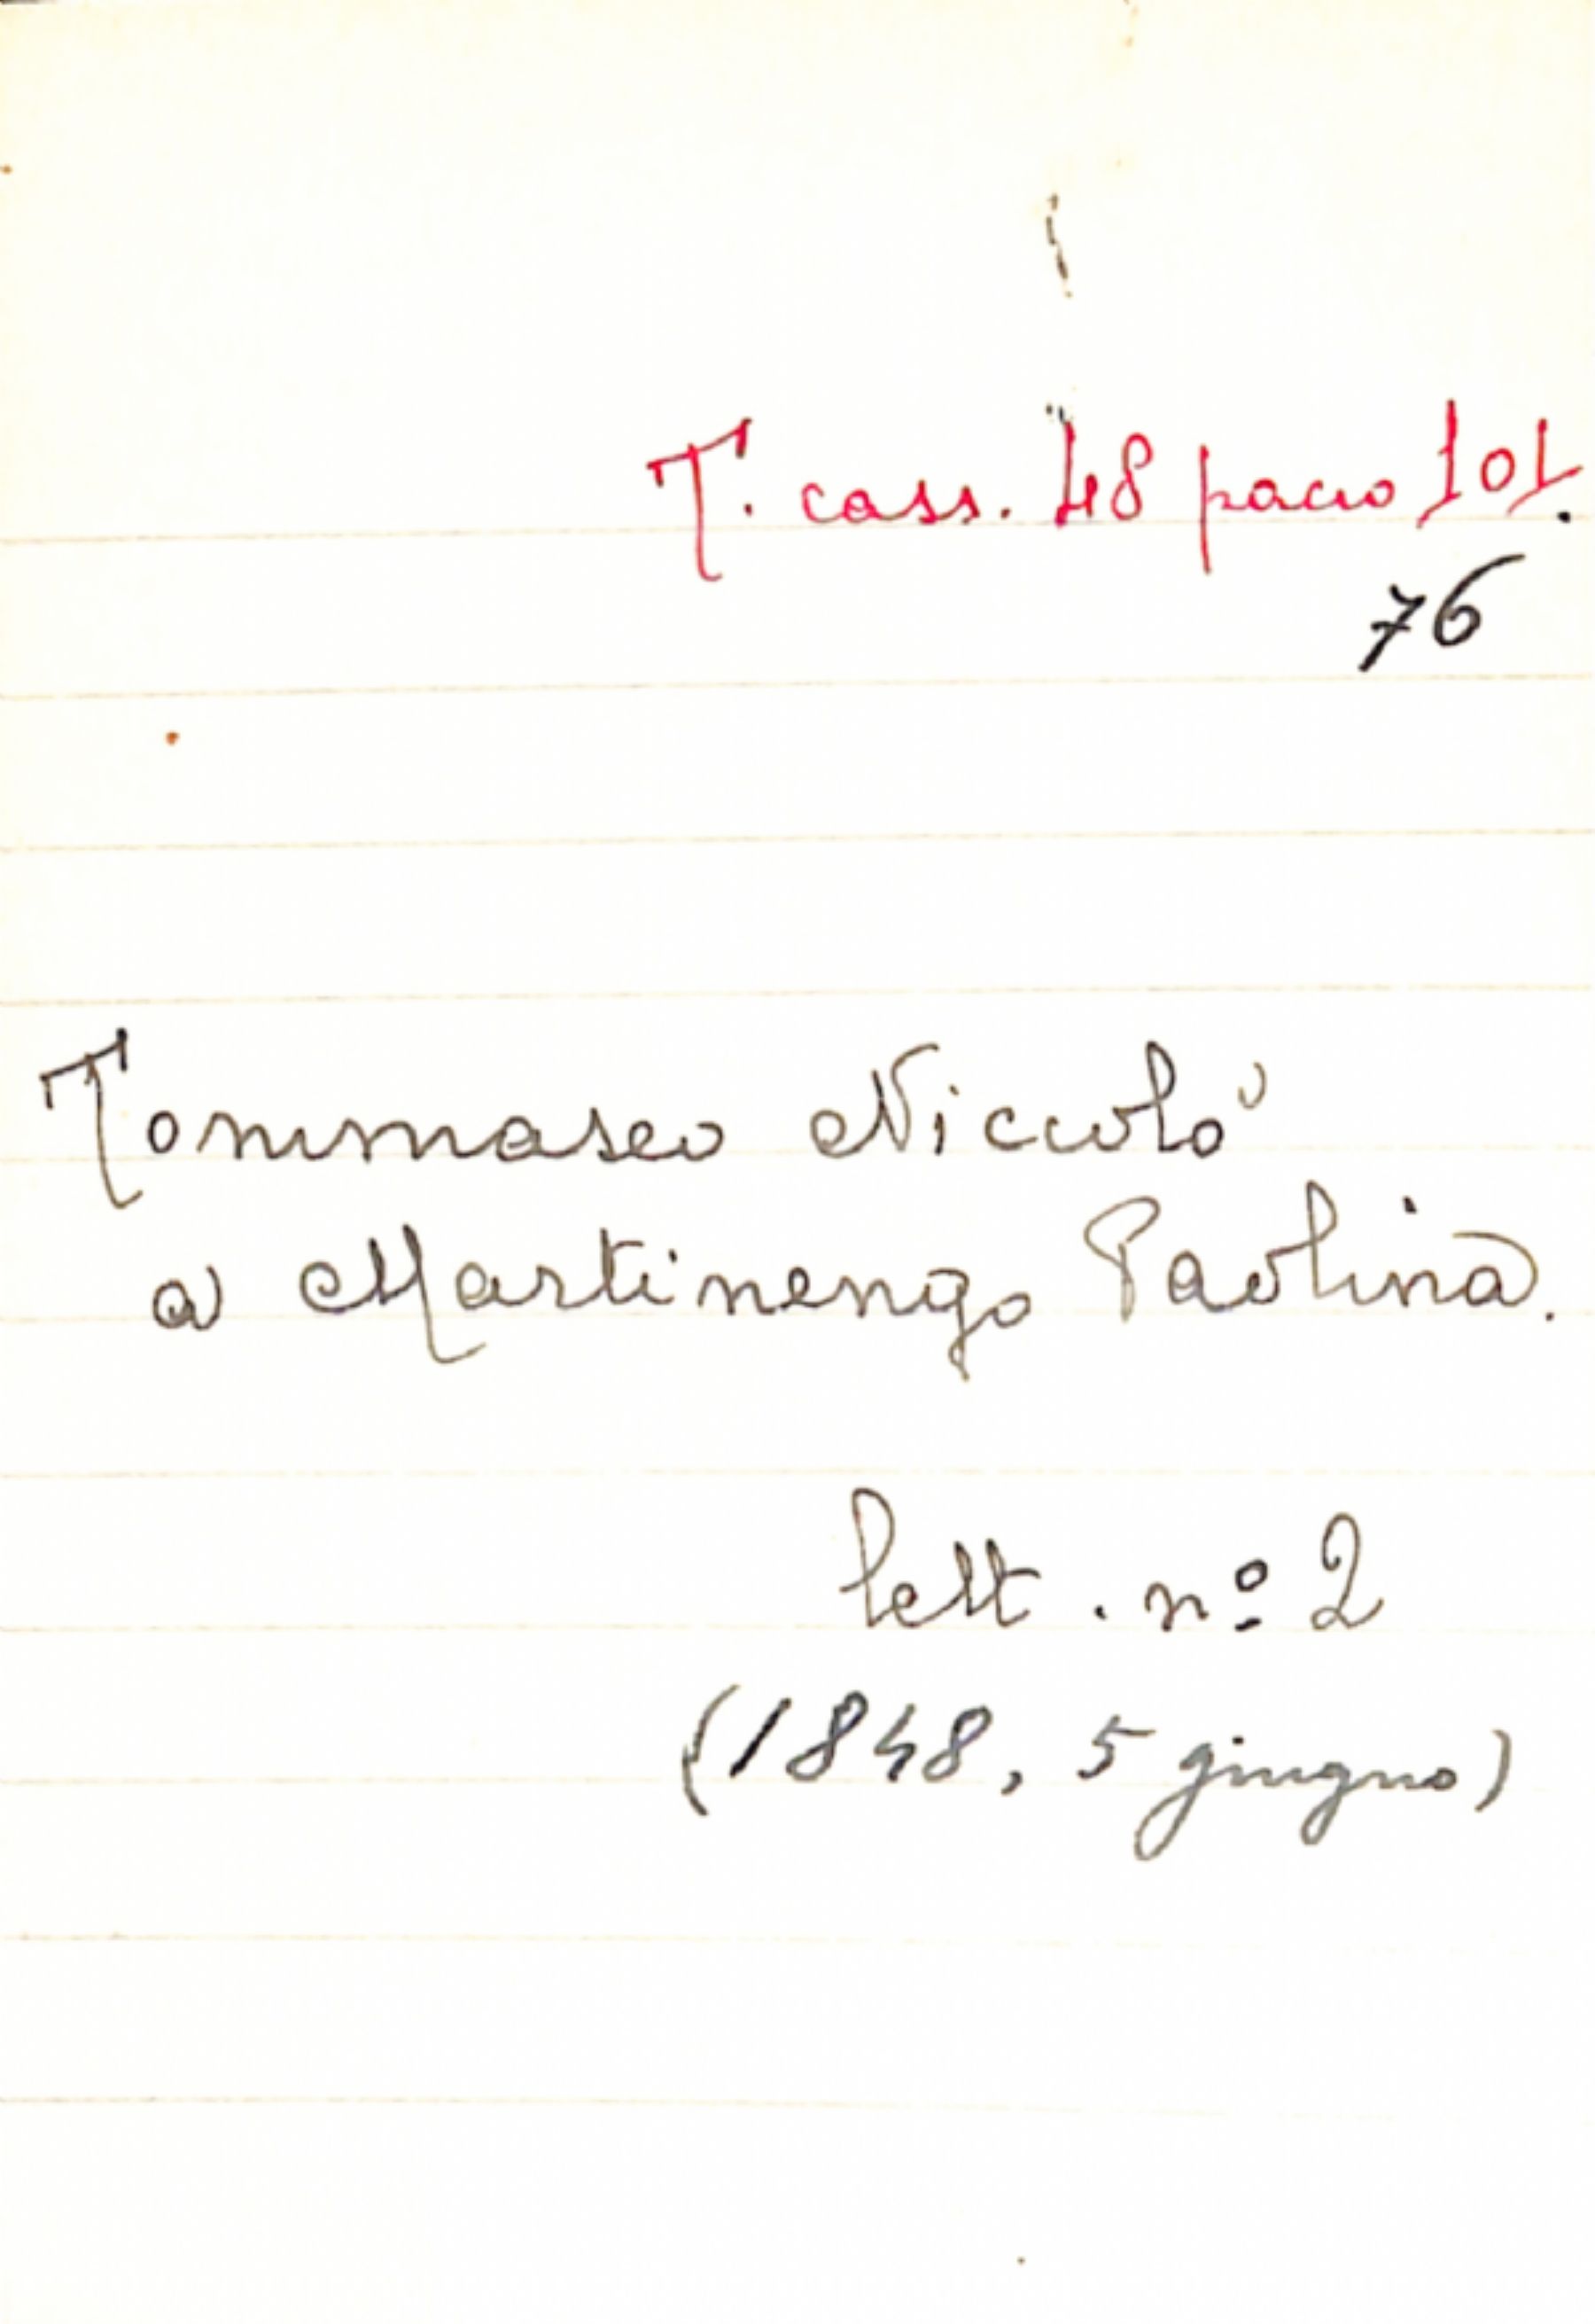 T. cass. 48 pacco 101.
76
Tommaseo Niccolò
a Martinengo Paolina.
lett. nº 2
(1848, 5 giugno)